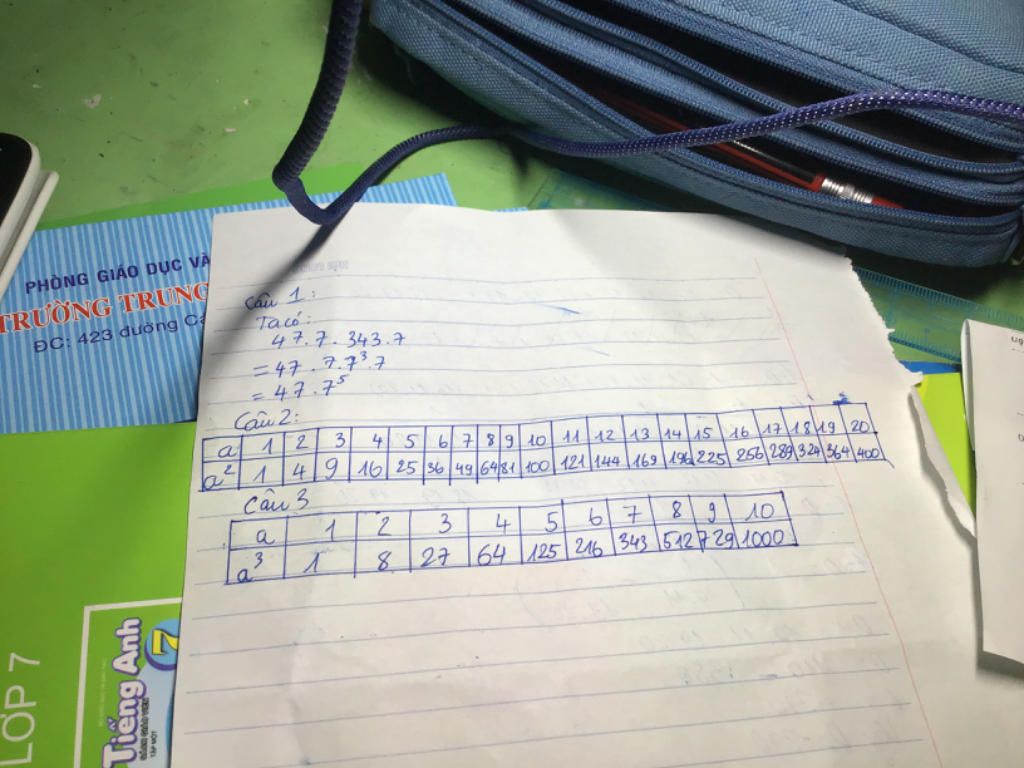 PHÒNG GIÁO DỤC VÀ
TRƯỜNG TRUNG
ĐC: 423 đường Cá
Câu 1:
Ta có:
47.7.343.7
= 47.7.7³.7
= 47.7⁵
Câu 2:
a 1 2 3 4 5 6 7 8 9 10 11 12 13 14 15 16 17 18 19 20
a² 1 4 9 16 25 36 49 64 81 100 121 144 169 196 225 256 289 324 364 400
Câu 3
a 1 2 3 4 5 6 7 8 9 10
a³ 1 8 27 64 125 216 343 512 729 1000
LỚP 7
Tiếng Anh 7
TẬP MỘT